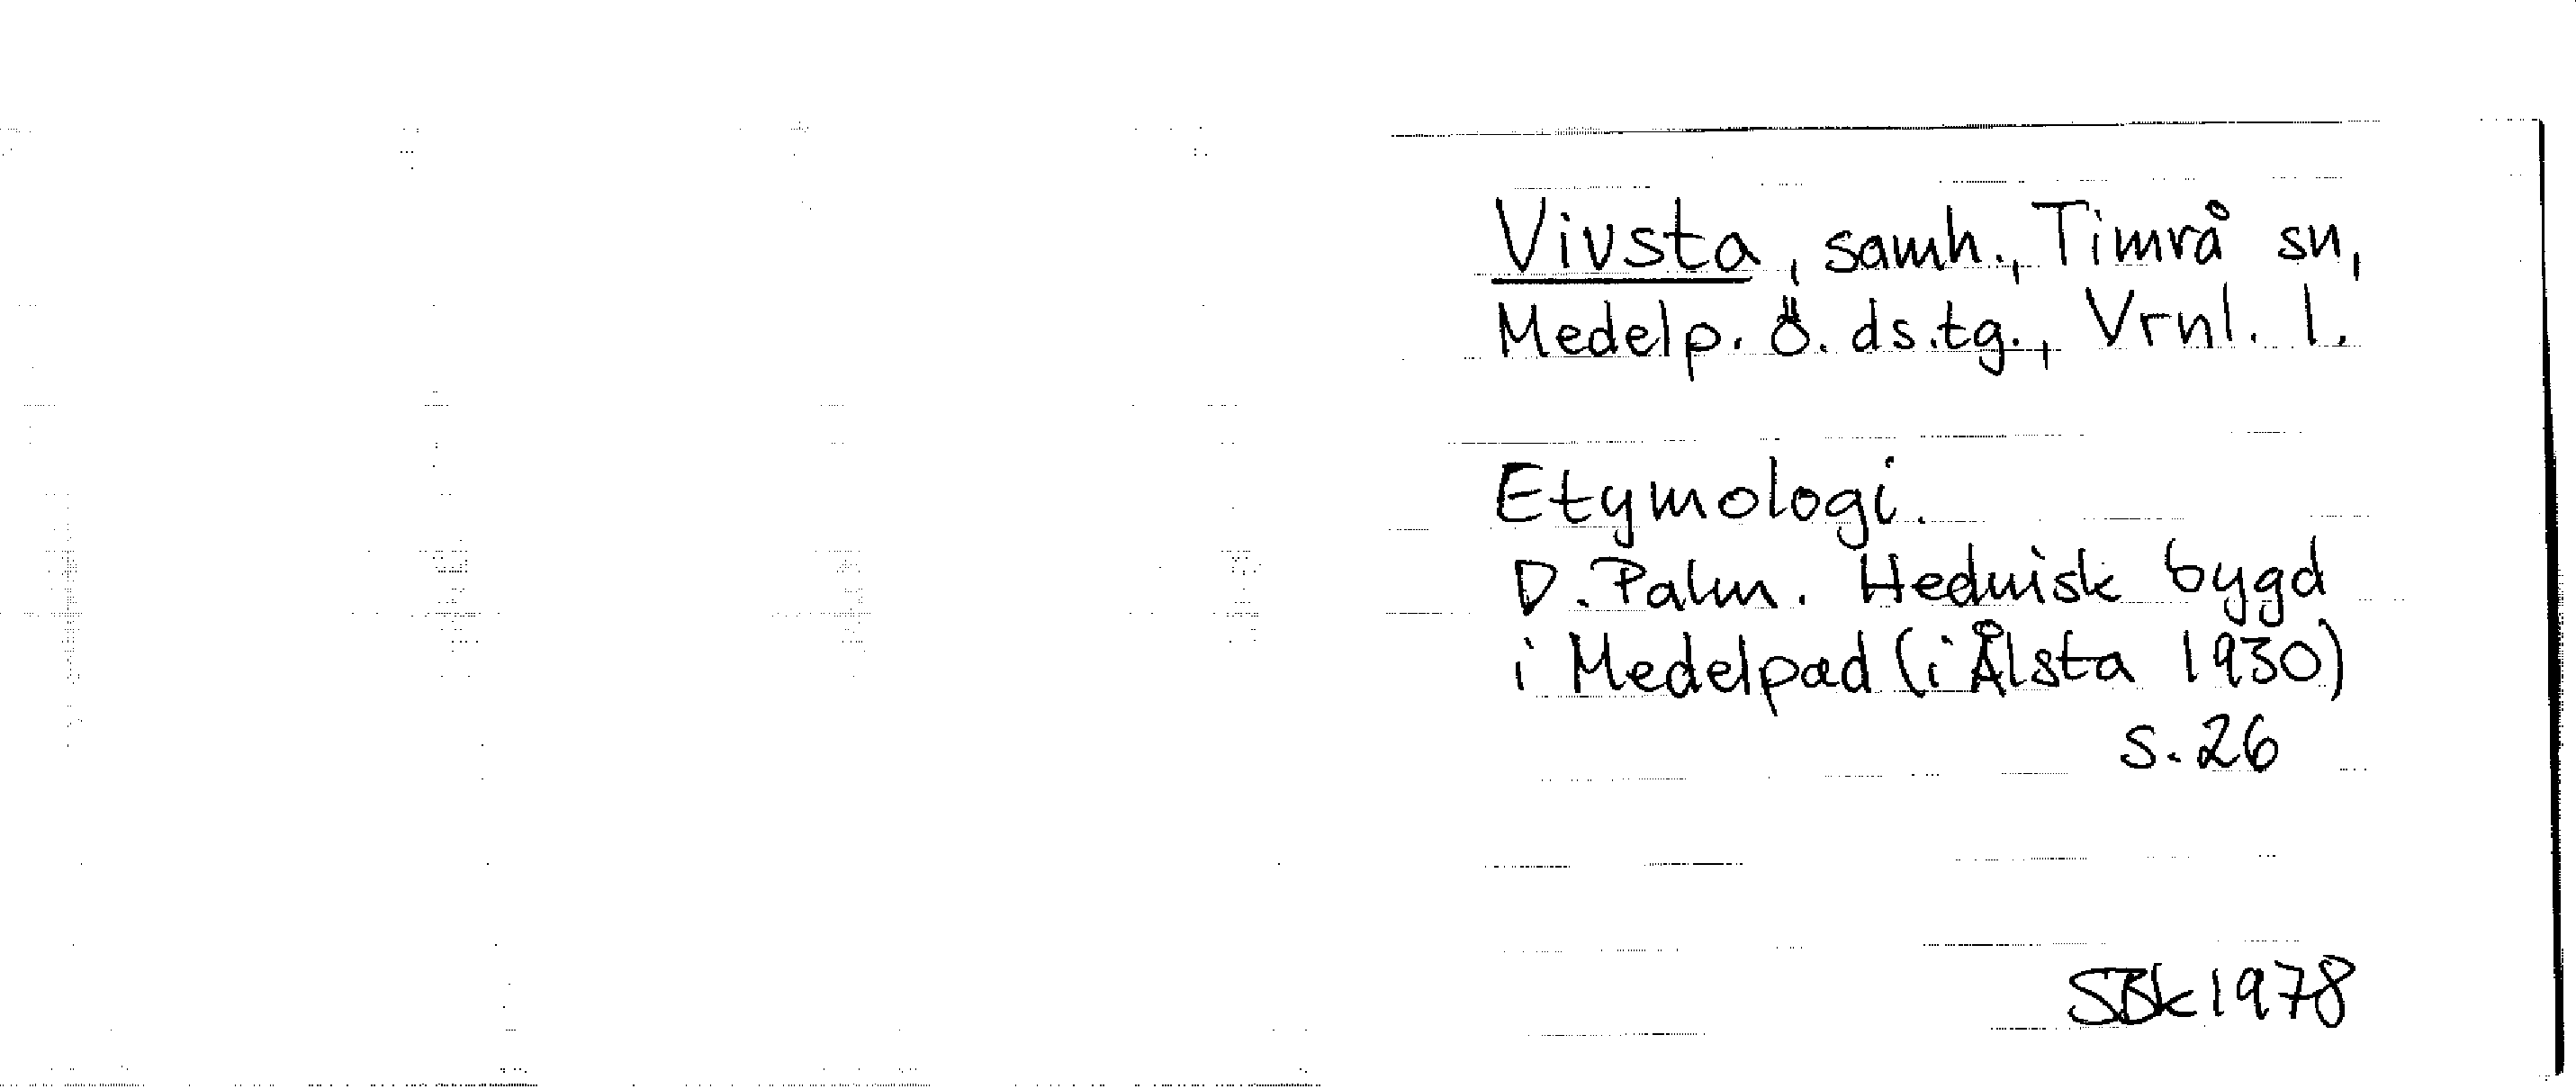 Vivsta, samh., Timrå sn,
Medelp. Ö. ds.tg., Vrnl. l.
Etymologi.
D. Palm. Hednisk bygd
i Medelpad (i Ålsta 1930)
s. 26
SBk 1978